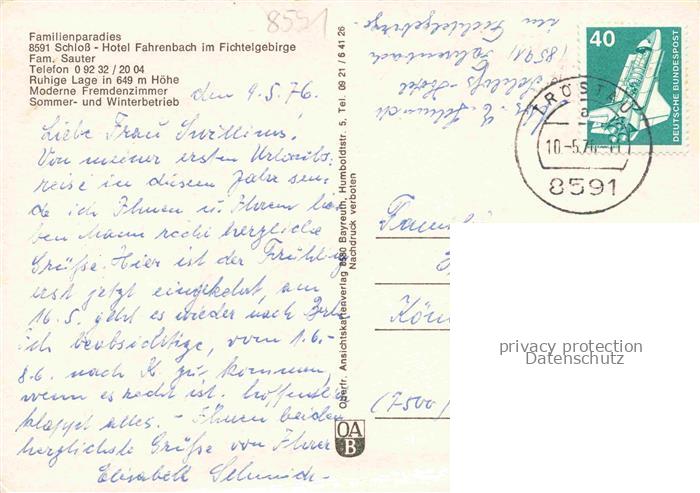 8591
Familienparadies
8591 Schloß - Hotel Fahrenbach im Fichtelgebirge
Fam. Sauter
Telefon 0 92 32 / 20 04
Ruhige Lage in 649 m Höhe
Moderne Fremdenzimmer
Sommer- und Winterbetrieb
den 9.5.76.
Liebe Frau
Von meiner ersten Urlaubs-
reise in diesem Jahr sen-
de ich Ihnen u. Ihrem lie-
ben Mann recht herzliche
Grüße. Hier ist der Frühling
erst jetzt eingekehrt, am
16.5. geht es wieder nach Berlin
ich beabsichtige, vom 1.6.-
8.6. nach K. zu kommen,
wenn es recht ist. hoffentl.
klappt alles. - Ihnen beiden
herzlichste Grüße von Ihrer
Elisabeth Schmidt-
Oberfr. Ansichtskartenverlag 8580 Bayreuth, Humboldtstr. 5, Tel. 09 21 / 6 41 26
Nachdruck verboten
OA
B
E. Schmidt
Schloß-Hotel
(8591) Fahrenbach
im Fichtelgebirge
40
DEUTSCHE BUNDESPOST
TRÖSTAU
a
10.-5.76.-11
8591
Fam
Kön
(7500)
privacy protection
Datenschutz